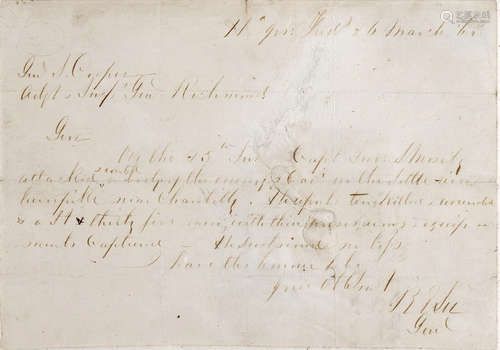 Hd Qrs: Fred: 26 March 63
Genl S. Cooper
Adjt & Insp: Genl Richmond
Genl
On the 23rd Inst Capt Jno. S. Mosby
attacked routed a body of the enemy's Cav: on the Little river
turnpike near Chantilly. He reports ten killed & wounded
& a Lt & thirty five men, with their horses arms & equip-
ments captured — He sustained no loss
have the honour to be
your obt svt
R E Lee
Genl